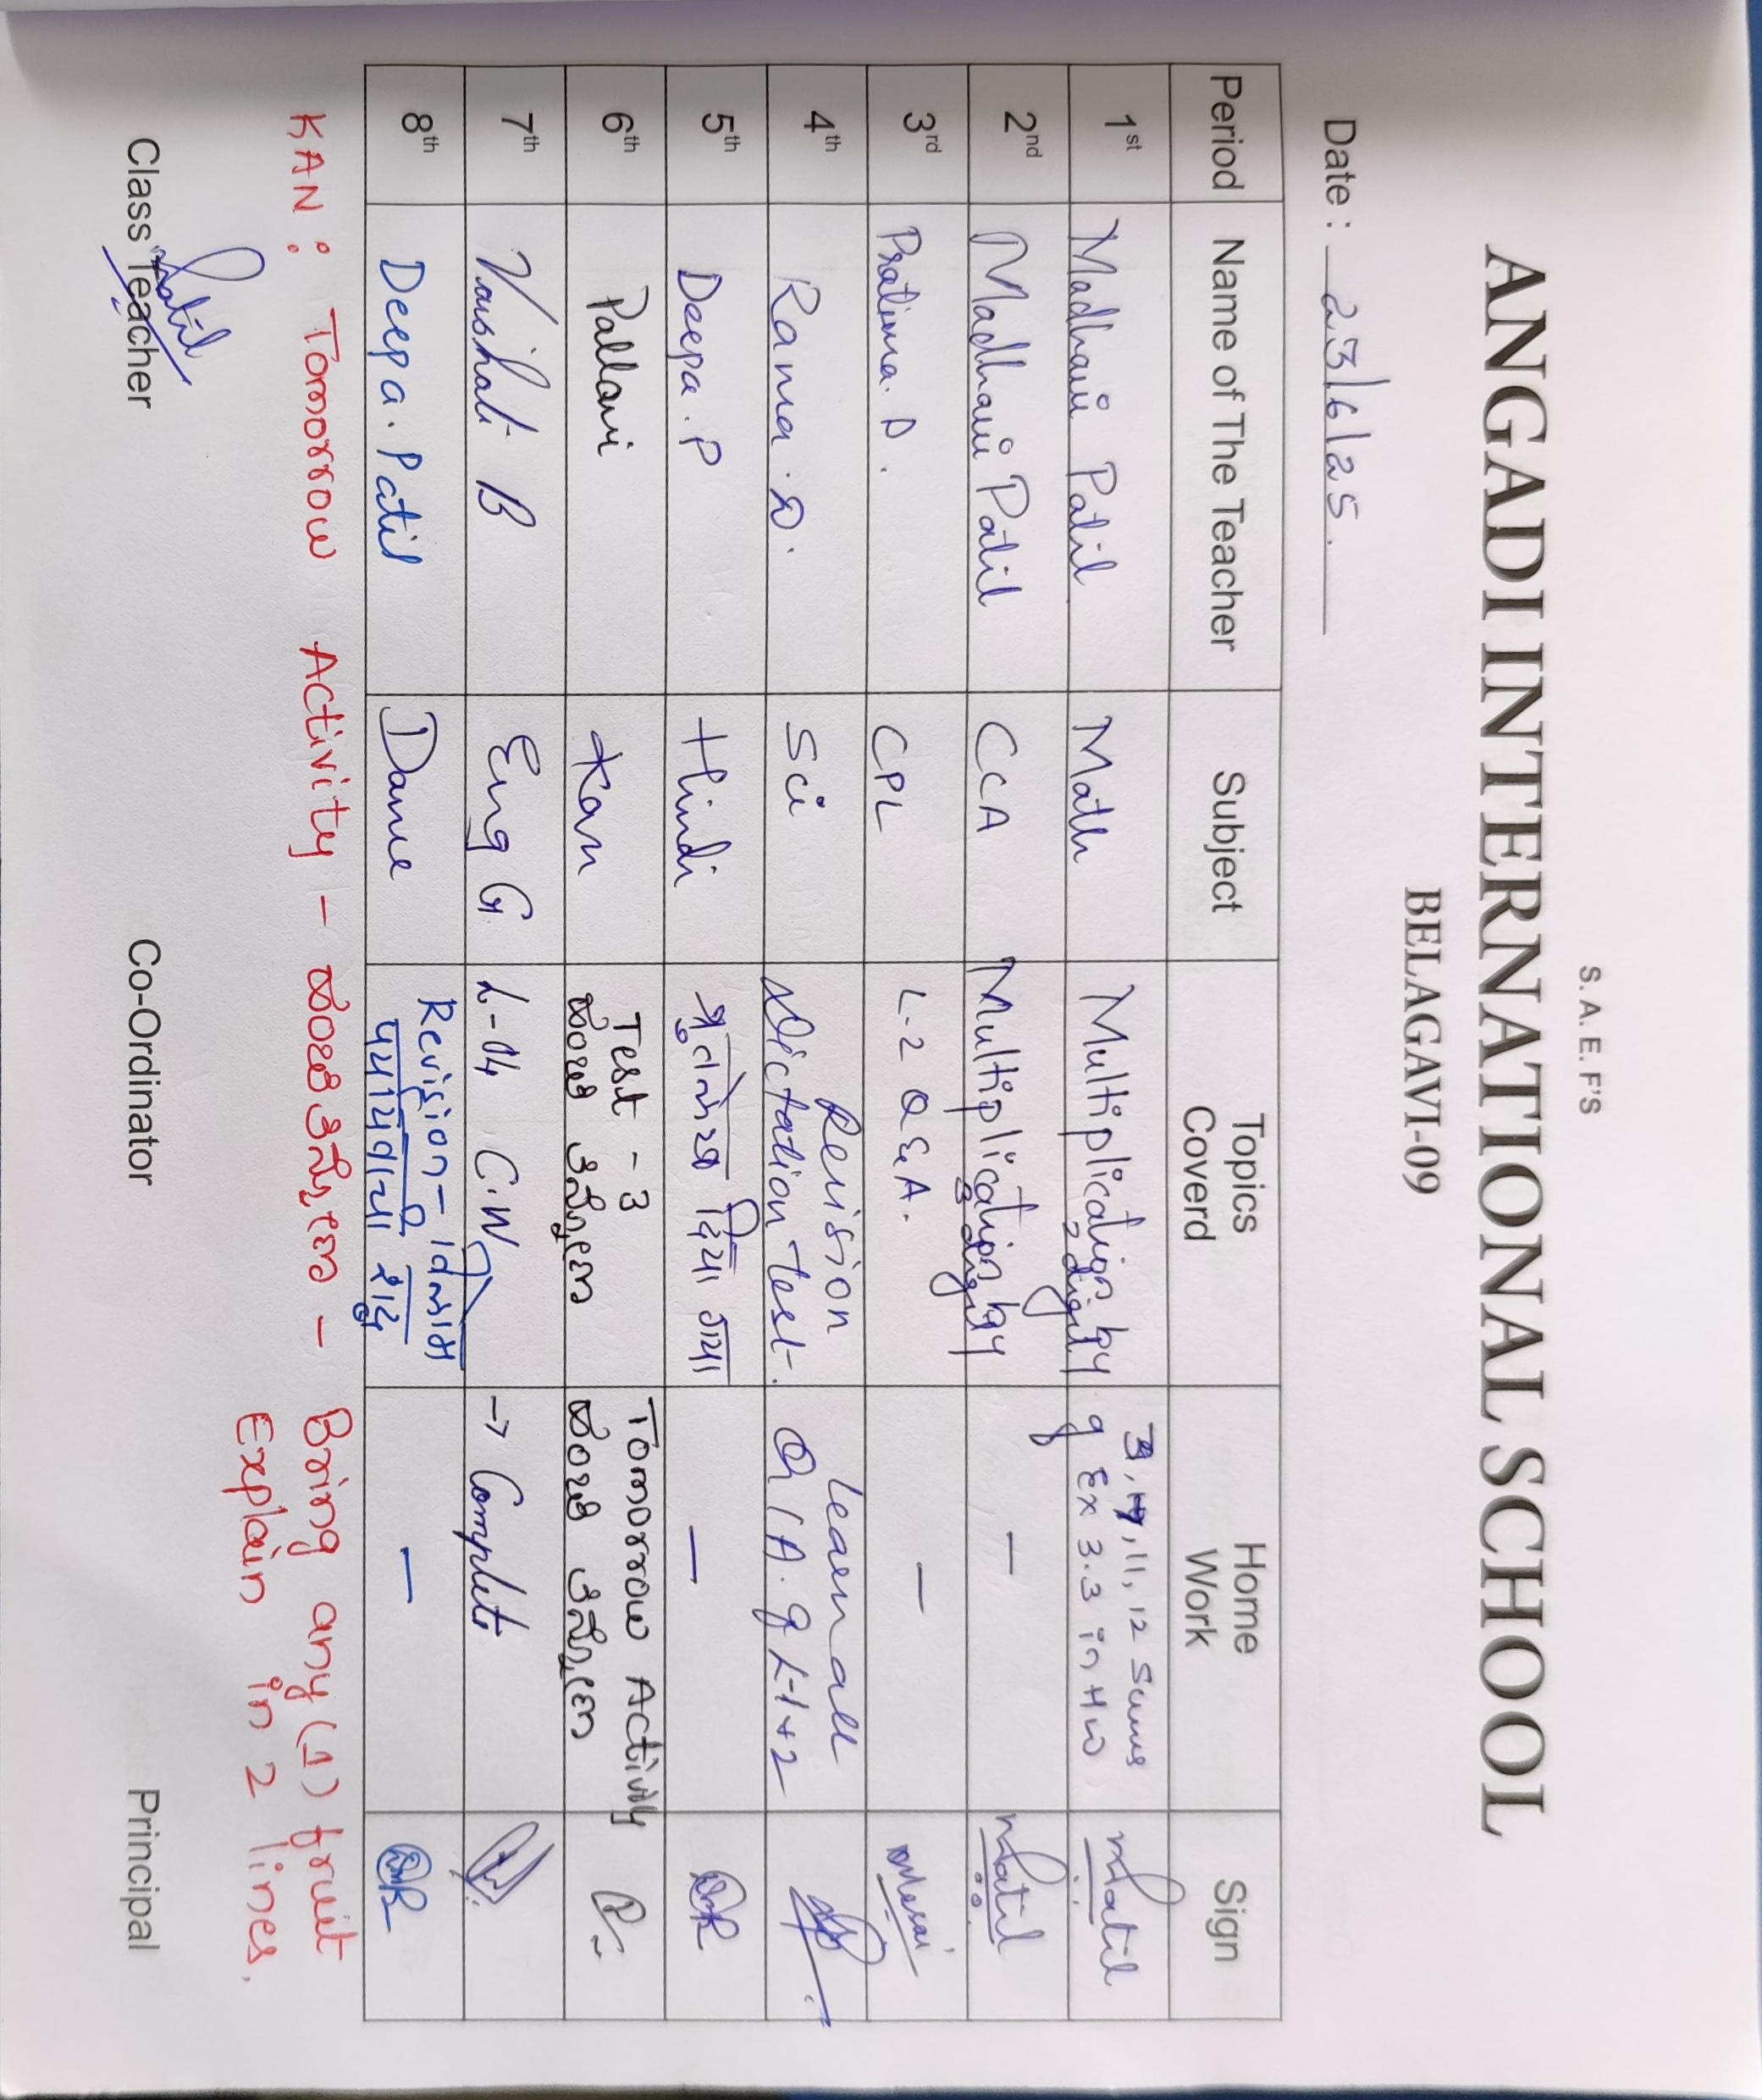 S. A. E. F'S
ANGADI INTERNATIONAL SCHOOL
BELAGAVI-09
Date : 23/6/25.
Period Name of The Teacher Subject Topics Coverd Home Work Sign
1st Madhavi Patil Math Multiplication by 2 digit 3, 4, 11, 12 Sums of Ex 3.3 in HW
2nd Madhavi Patil CCA Multiplication by 3 digit — Patil
3rd Pratima. D. CPL L-2 Q & A. — Desai
4th Rama. D. Sci Revision Dictation Test. Learn all Q/A. of L-1+2
5th Deepa. P Hindi श्रुतलेख दिया गया —
6th Pallavi Kan Test - 3 ಹಂಚಿ ತಿನ್ನೋಣ Tomorrow Activity ಹಂಚಿ ತಿನ್ನೋಣ
7th Vaishali B Eng G L-04 C.W → Complete
8th Deepa. Patil Dance Revision - विलोम पर्यायवाची शब्द —
KAN: Tomorrow Activity - ಹಂಚಿತಿನ್ನೋಣ - Bring any (1) fruit
Explain in 2 lines.
Patil
Class Teacher Co-Ordinator Principal